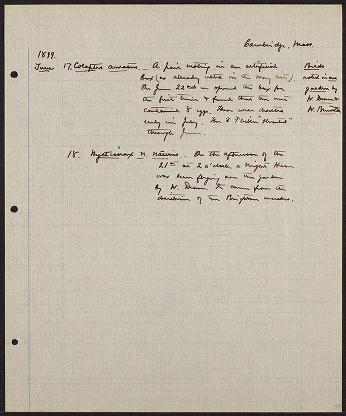 Cambridge, Mass.
1899.
June 17. Colaptes auratus. A pair nesting in an artificial
box (as already noted in the May list).
On June 22nd we opened the box for
the first time & found that the nest
contained 8 eggs. These were hatched
early in July. The ♂ "shouted"
through June.
Birds
noted in our
garden by
W. Deane &
W. Brewster
18. Nycticorax n. naevius. On the afternoon of the
21st at 2 o'clock a Night Heron
was seen flying over the garden
by W. Deane. It came from the
direction of the Brighton marshes.